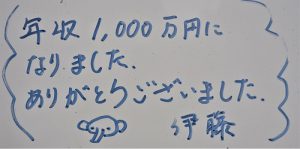 年収1,000万円に
なりました.
ありがとうございました.
伊藤